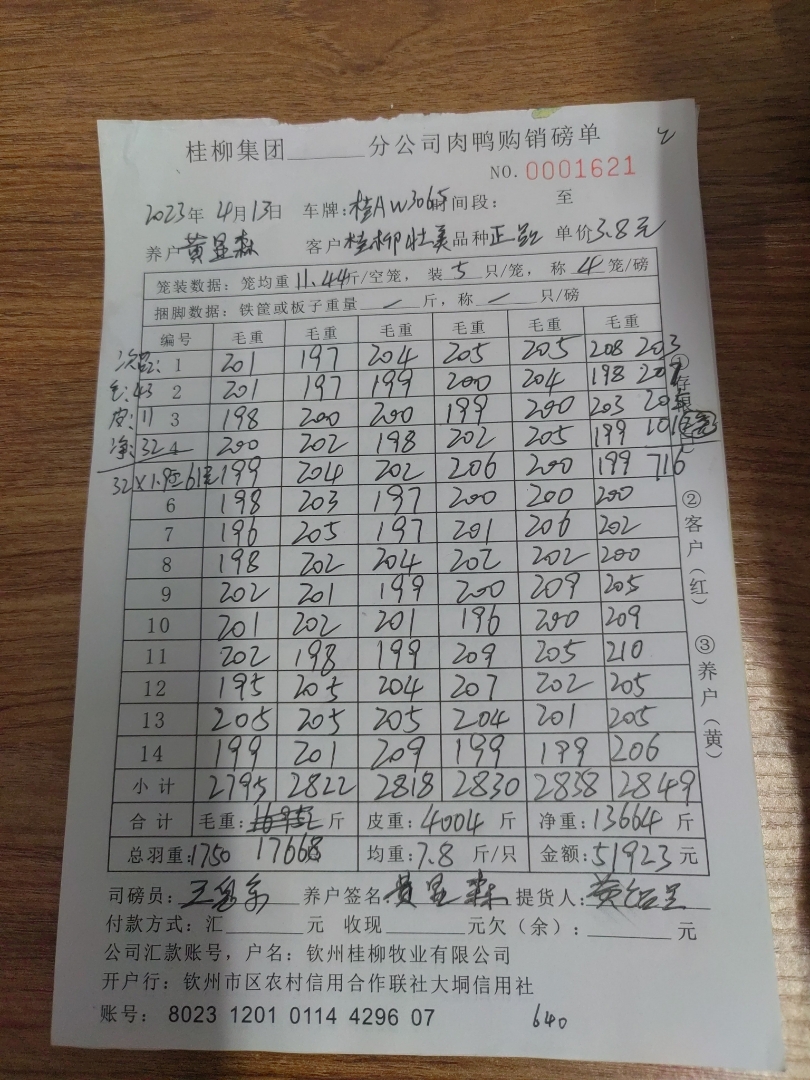 桂柳集团______分公司肉鸭购销磅单
NO.0001621
2023年 4月13日 车牌:桂AW3065时间段: 至
养户黄显森 客户桂柳壮美品种正品 单价3.8元
笼装数据：笼均重11.44斤/空笼，装5只/笼，称4笼/磅
捆脚数据：铁筐或板子重量 — 斤，称 — 只/磅
编号 毛重 毛重 毛重 毛重 毛重 毛重
1 201 197 204 205 205 208 203
毛:43 2 201 197 199 200 204 198 207
皮:11 3 198 200 200 199 200 203
净:32 4 200 202 198 202 205 199 101
32×1.9=61元 199 204 202 206 200 199 716
6 198 203 197 200 200 200
7 196 205 197 201 206 202
8 198 202 204 202 202 200
9 202 201 199 200 209 205
10 201 202 201 196 200 209
11 202 198 199 209 205 210
12 195 205 204 207 202 205
13 205 205 205 204 201 205
14 199 201 209 199 199 206
小计 2795 2822 2818 2830 2838 2849
合计 毛重: 斤 皮重:4004 斤 净重:13664 斤
总羽重:1750 17668 均重:7.8 斤/只 金额:51923元
司磅员: 养户签名黄显森 提货人:
付款方式：汇______元 收现______元欠（余）：______元
公司汇款账号，户名：钦州桂柳牧业有限公司
开户行：钦州市区农村信用合作联社大垌信用社
账号： 8023 1201 0114 4296 07
640
①存根
②客户（红）
③养户（黄）